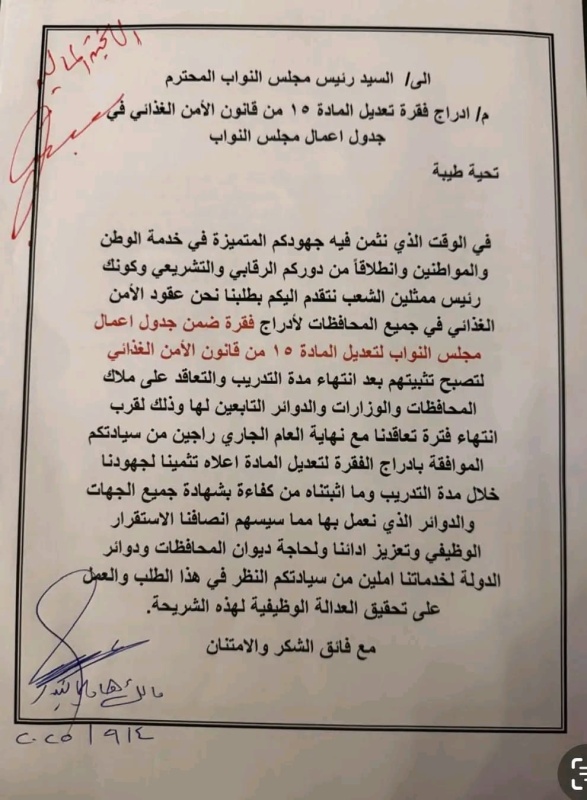 اللجنة المالية
الى/ السيد رئيس مجلس النواب المحترم
م/ ادراج فقرة تعديل المادة ١٥ من قانون الأمن الغذائي في
جدول اعمال مجلس النواب
تحية طيبة
في الوقت الذي نثمن فيه جهودكم المتميزة في خدمة الوطن
والمواطنين وانطلاقاً من دوركم الرقابي والتشريعي وكونك
رئيس ممثلين الشعب نتقدم اليكم بطلبنا نحن عقود الأمن
الغذائي في جميع المحافظات لأدراج فقرة ضمن جدول اعمال
مجلس النواب لتعديل المادة ١٥ من قانون الأمن الغذائي
لتصبح تثبيتهم بعد انتهاء مدة التدريب والتعاقد على ملاك
المحافظات والوزارات والدوائر التابعين لها وذلك لقرب
انتهاء فترة تعاقدنا مع نهاية العام الجاري راجين من سيادتكم
الموافقة بادراج الفقرة لتعديل المادة اعلاه تثمينا لجهودنا
خلال مدة التدريب وما اثبتناه من كفاءة بشهادة جميع الجهات
والدوائر الذي نعمل بها مما سيسهم انصافنا الاستقرار
الوظيفي وتعزيز ادائنا ولحاجة ديوان المحافظات ودوائر
الدولة لخدماتنا املين من سيادتكم النظر في هذا الطلب والعمل
على تحقيق العدالة الوظيفية لهذه الشريحة.
مع فائق الشكر والامتنان
٢٠٢٥/٩/٤